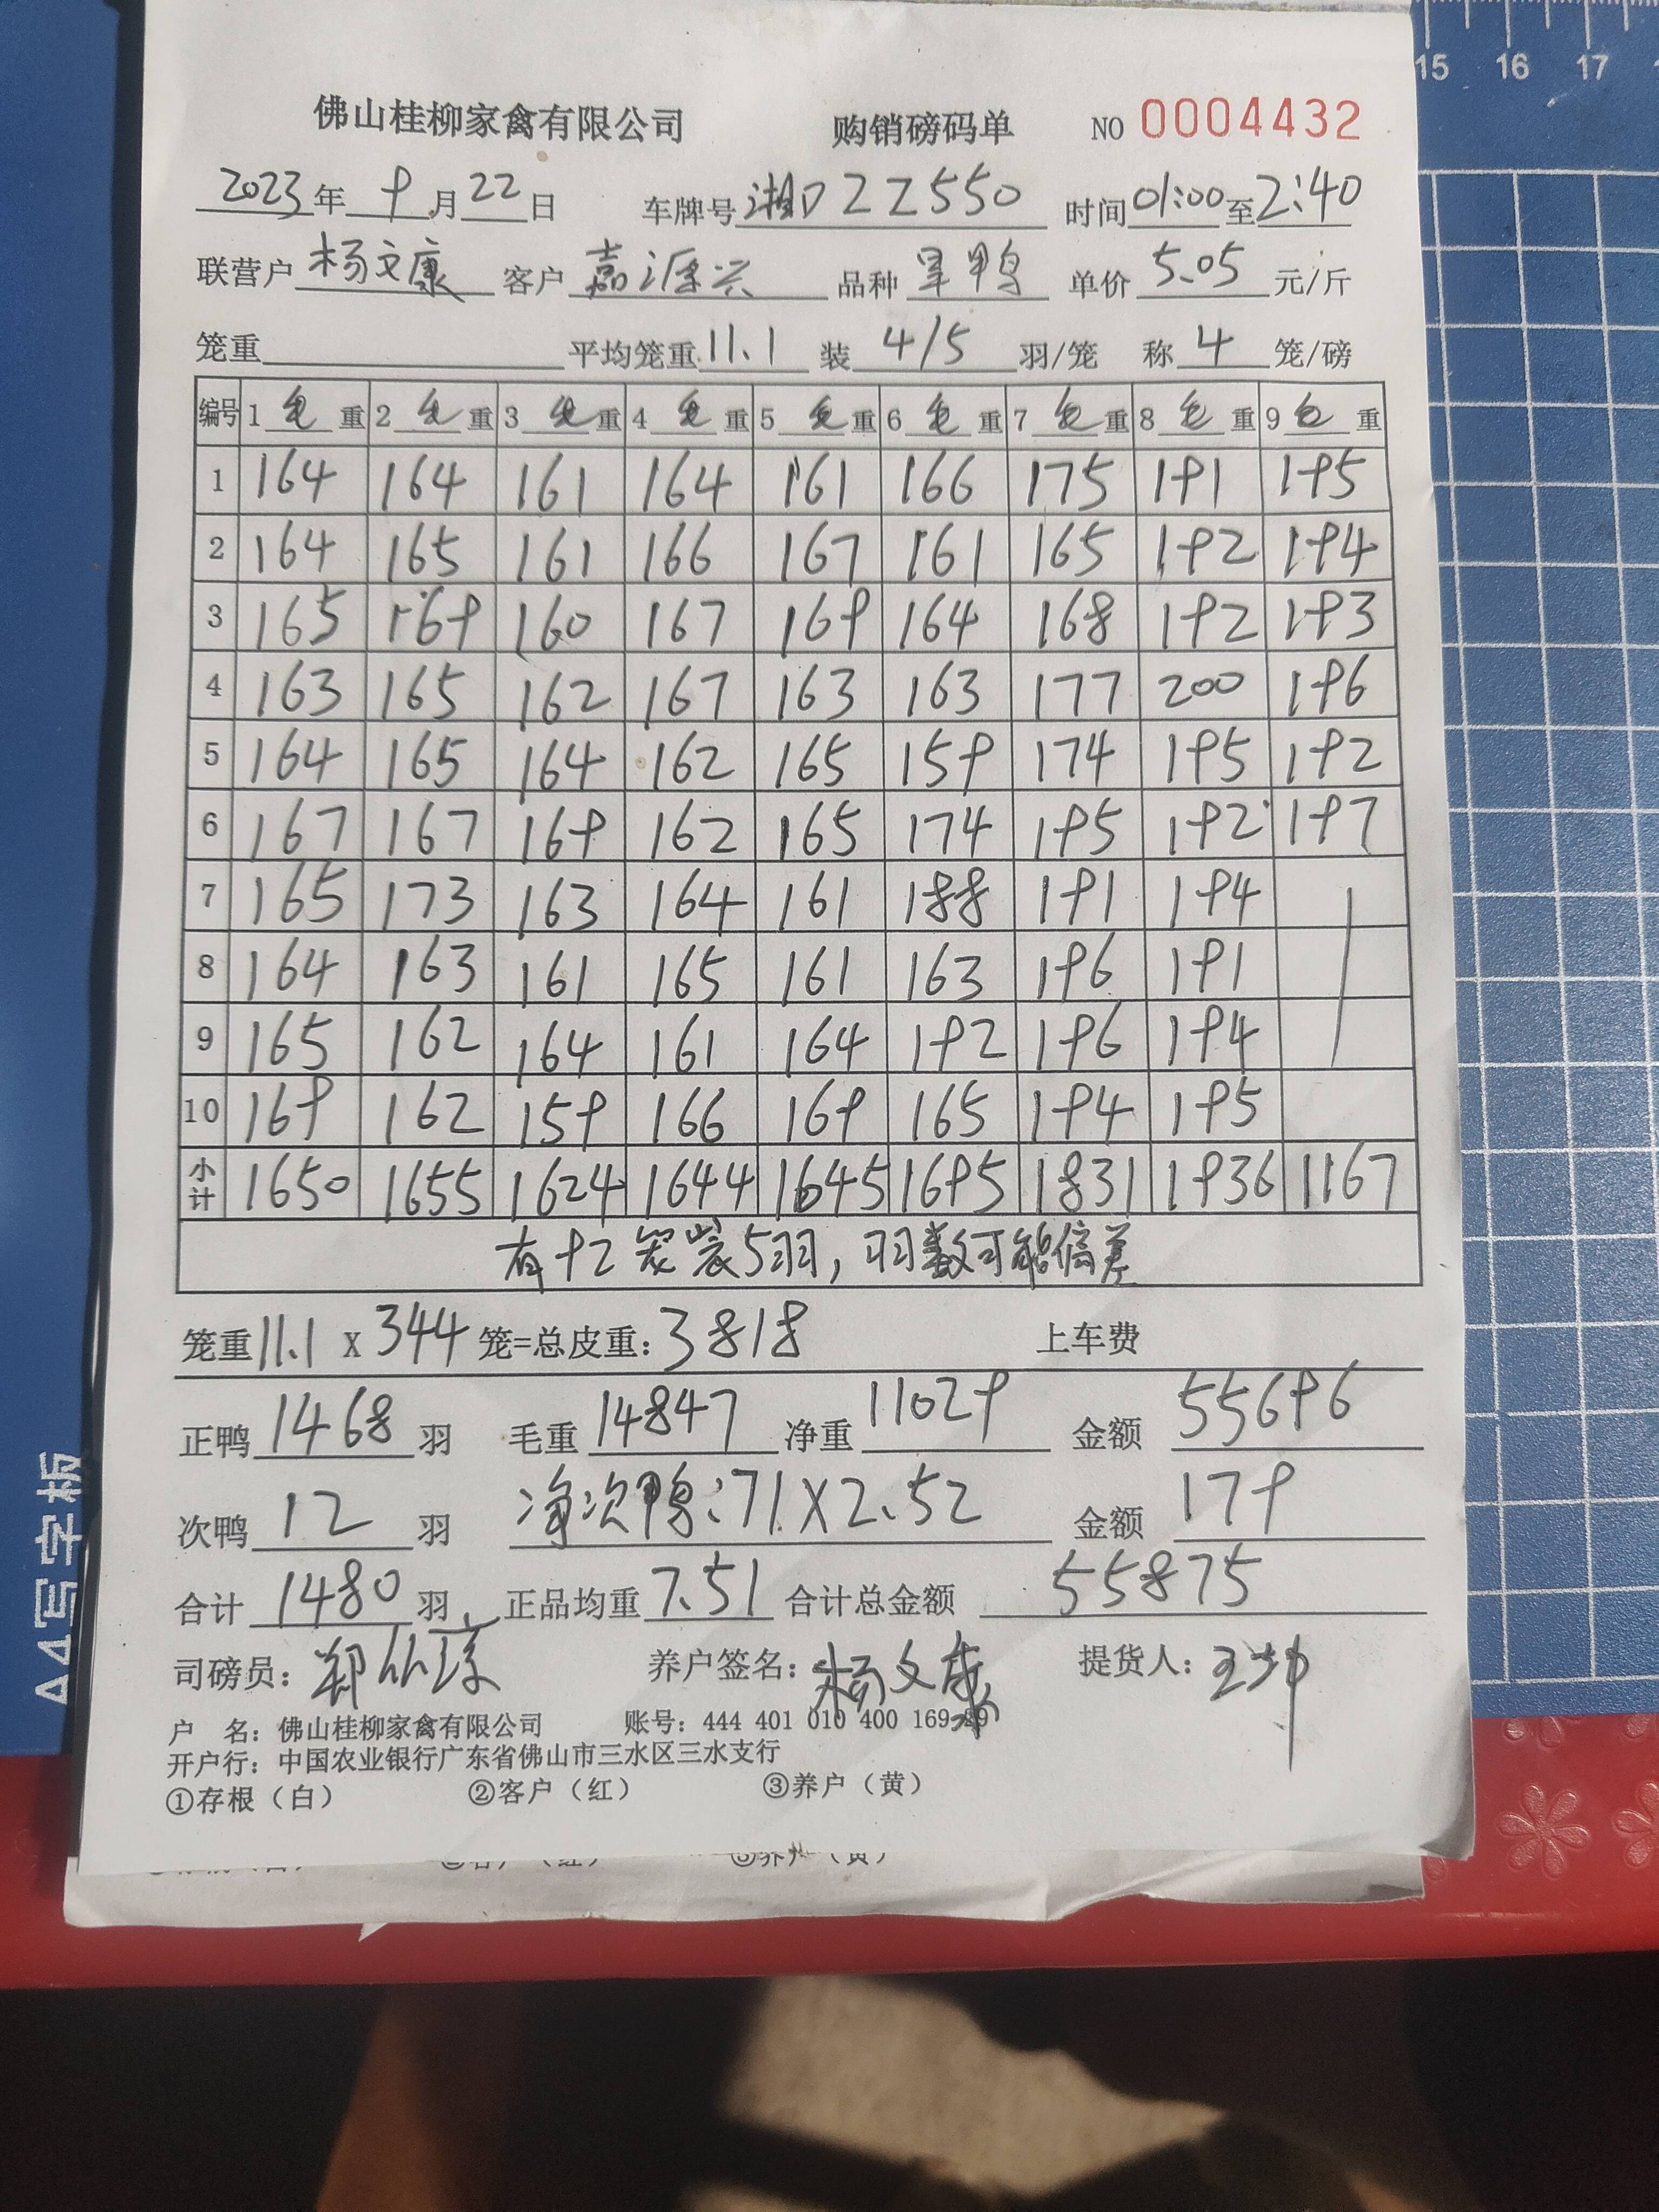 佛山桂柳家禽有限公司 购销磅码单 NO 0004432
2023年 9月22日 车牌号 湘DZZ550 时间01:00至2:40
联营户 杨文康 客户 嘉源兴 品种 旱鸭 单价 5.05 元/斤
笼重 平均笼重 11.1 装 4/5 羽/笼 称 4 笼/磅
编号 1 毛 重 2 毛 重 3 毛 重 4 毛 重 5 毛 重 6 毛 重 7 毛 重 8 毛 重 9 毛 重
1 164 164 161 164 161 166 175 191 195
2 164 165 161 166 167 161 165 192 194
3 165 169 160 167 169 164 168 192 193
4 163 165 162 167 163 163 177 200 196
5 164 165 164 162 165 159 174 195 192
6 167 167 169 162 165 174 195 192 197
7 165 173 163 164 161 188 191 194
8 164 163 161 165 161 163 196 191
9 165 162 164 161 164 192 196 194
10 169 162 159 166 169 165 194 195
小计 1650 1655 1624 1644 1645 1695 1831 1936 1167
有92笼装5羽，羽数可能偏差
笼重11.1 x 344 笼=总皮重：3818 上车费
正鸭 1468 羽 毛重 14847 净重 11029 金额 55696
次鸭 12 羽 净次鸭：71X2.52 金额 179
合计 1480 羽 正品均重 7.51 合计总金额 55875
司磅员： 养户签名：杨文康 提货人：
户 名：佛山桂柳家禽有限公司 账号：444 401 010 400 169
开户行：中国农业银行广东省佛山市三水区三水支行
①存根（白） ②客户（红） ③养户（黄）
③养户（黄）
A4写字板
15 16 17